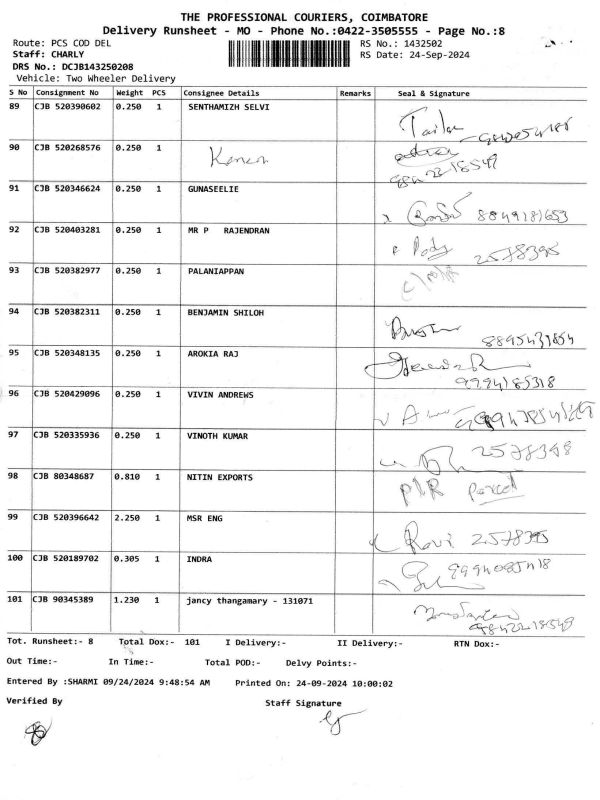 THE PROFESSIONAL COURIERS, COIMBATORE
Delivery Runsheet - MO - Phone No.:0422-3505555 - Page No.:8
Route: PCS COD DEL RS No.: 1432502
Staff: CHARLY RS Date: 24-Sep-2024
DRS No.: DCJB143250208
Vehicle: Two Wheeler Delivery
S No Consignment No Weight PCS Consignee Details Remarks Seal & Signature
89 CJB 520390602 0.250 1 SENTHAMIZH SELVI
90 CJB 520268576 0.250 1
91 CJB 520346624 0.250 1 GUNASEELIE
92 CJB 520403281 0.250 1 MR P RAJENDRAN
2578395
93 CJB 520382977 0.250 1 PALANIAPPAN
94 CJB 520382311 0.250 1 BENJAMIN SHILOH
95 CJB 520348135 0.250 1 AROKIA RAJ
9994185318
96 CJB 520429096 0.250 1 VIVIN ANDREWS
97 CJB 520335936 0.250 1 VINOTH KUMAR
98 CJB 80348687 0.810 1 NITIN EXPORTS
Parcel
99 CJB 520396642 2.250 1 MSR ENG
Ravi 2578395
100 CJB 520189702 0.305 1 INDRA
101 CJB 90345389 1.230 1 jancy thangamary - 131071
Tot. Runsheet:- 8 Total Dox:- 101 I Delivery:- II Delivery:- RTN Dox:-
Out Time:- In Time:- Total POD:- Delvy Points:-
Entered By :SHARMI 09/24/2024 9:48:54 AM Printed On: 24-09-2024 10:00:02
Verified By Staff Signature